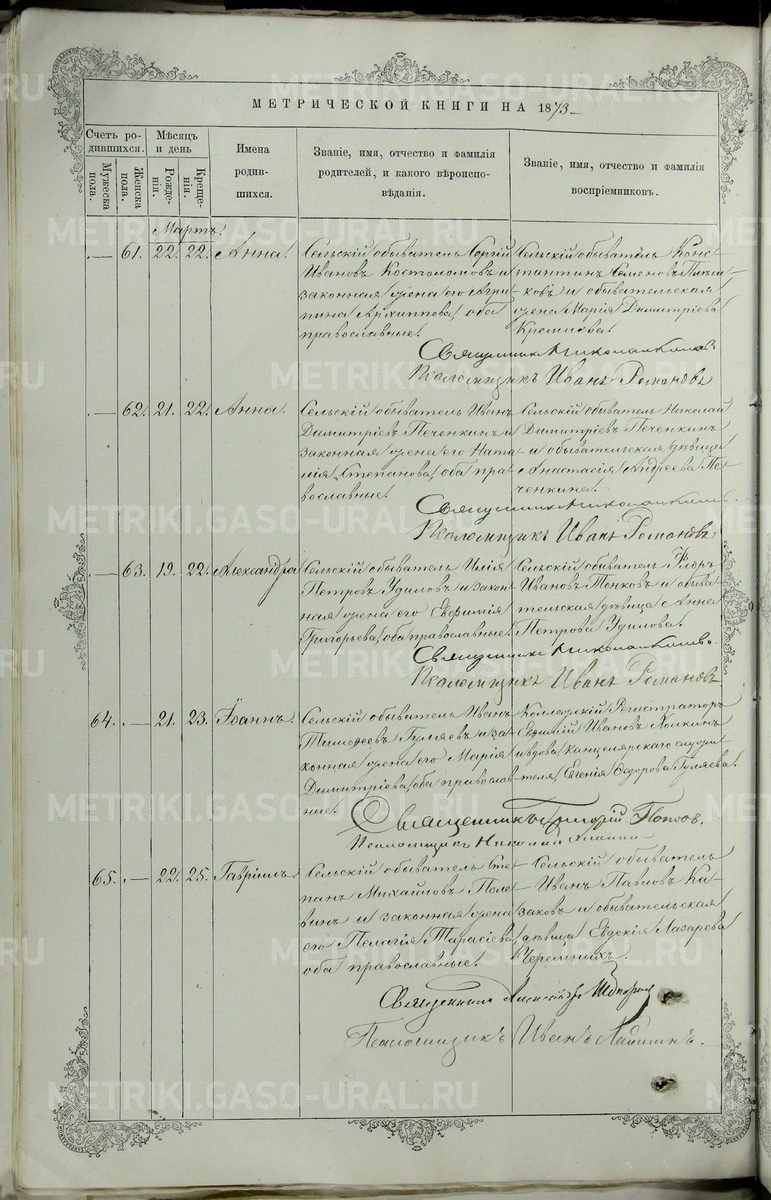 МЕТРИЧЕСКОЙ КНИГИ НА 1873
Счетъ ро-
дившихся.
Мѣсяцъ
и день
Имена
родив-
шихся.
Званіе, имя, отчество и фамилія
родителей, и какого вѣроиспо-
вѣданія.
Званіе, имя, отчество и фамилія
воспріемниковъ.
Мужеска
пола.
Женска
пола.
Рожде-
нія.
Креще-
нія.
Мартъ.
61. 22. 22. Анна.
Сельскій обыватель Сергій
Ивановъ Костоломовъ и
законная жена его Агри-
пина Архиппова, оба
православные.
Сельскій обыватель Конс-
тантинъ Семеновъ
и обывательская
жена Марія Димитріева
Священникъ Николай
Псаломщикъ Иванъ Романовъ
62. 21. 22. Анна.
Сельскій обыватель Иванъ
Димитріевъ Печенкинъ и
законная жена его Ната-
лія Степанова, оба пра-
вославные.
Сельскій обыватель Николай
Димитріевъ Печенкинъ
и обывательская дѣвица
Анастасія Андреева Пе-
ченкина.
Священникъ Николай
Псаломщикъ Иванъ Романовъ
63. 19. 22. Александра
Сельскій обыватель Илія
Петровъ Удиловъ и закон-
ная жена его Евфимія
Григорьева, оба православные.
Сельскій обыватель Ѳедръ
Ивановъ Тонковъ и обыва-
тельская дѣвица Анна
Петрова Удилова.
Священникъ Николай
Псаломщикъ Иванъ Романовъ
64. 21. 23. Іоаннъ.
Сельскій обыватель Иванъ
Тимофеевъ Гуляевъ и за-
конная жена его Марія
Димитріева, оба православ-
ные.
Коллежскій Регистраторъ
Евфимій Ивановъ
и вдова канцелярскаго служи-
теля Евгенія Ѳедорова Гуляева.
Священникъ Григорій Поповъ.
Псаломщикъ Николай
65. 22. 25. Гавріилъ.
Сельскій обыватель Сте-
панъ Михайловъ Поле-
винъ и законная жена
его Пелагія Тарасіева,
оба православные.
Сельскій обыватель
Иванъ Павловъ Ка-
заковъ и обывательская
дѣвица Евдокія Лазарева
Черемныхъ.
Священникъ
Псаломщикъ Иванъ
METRIKI.GASO-URAL.RU